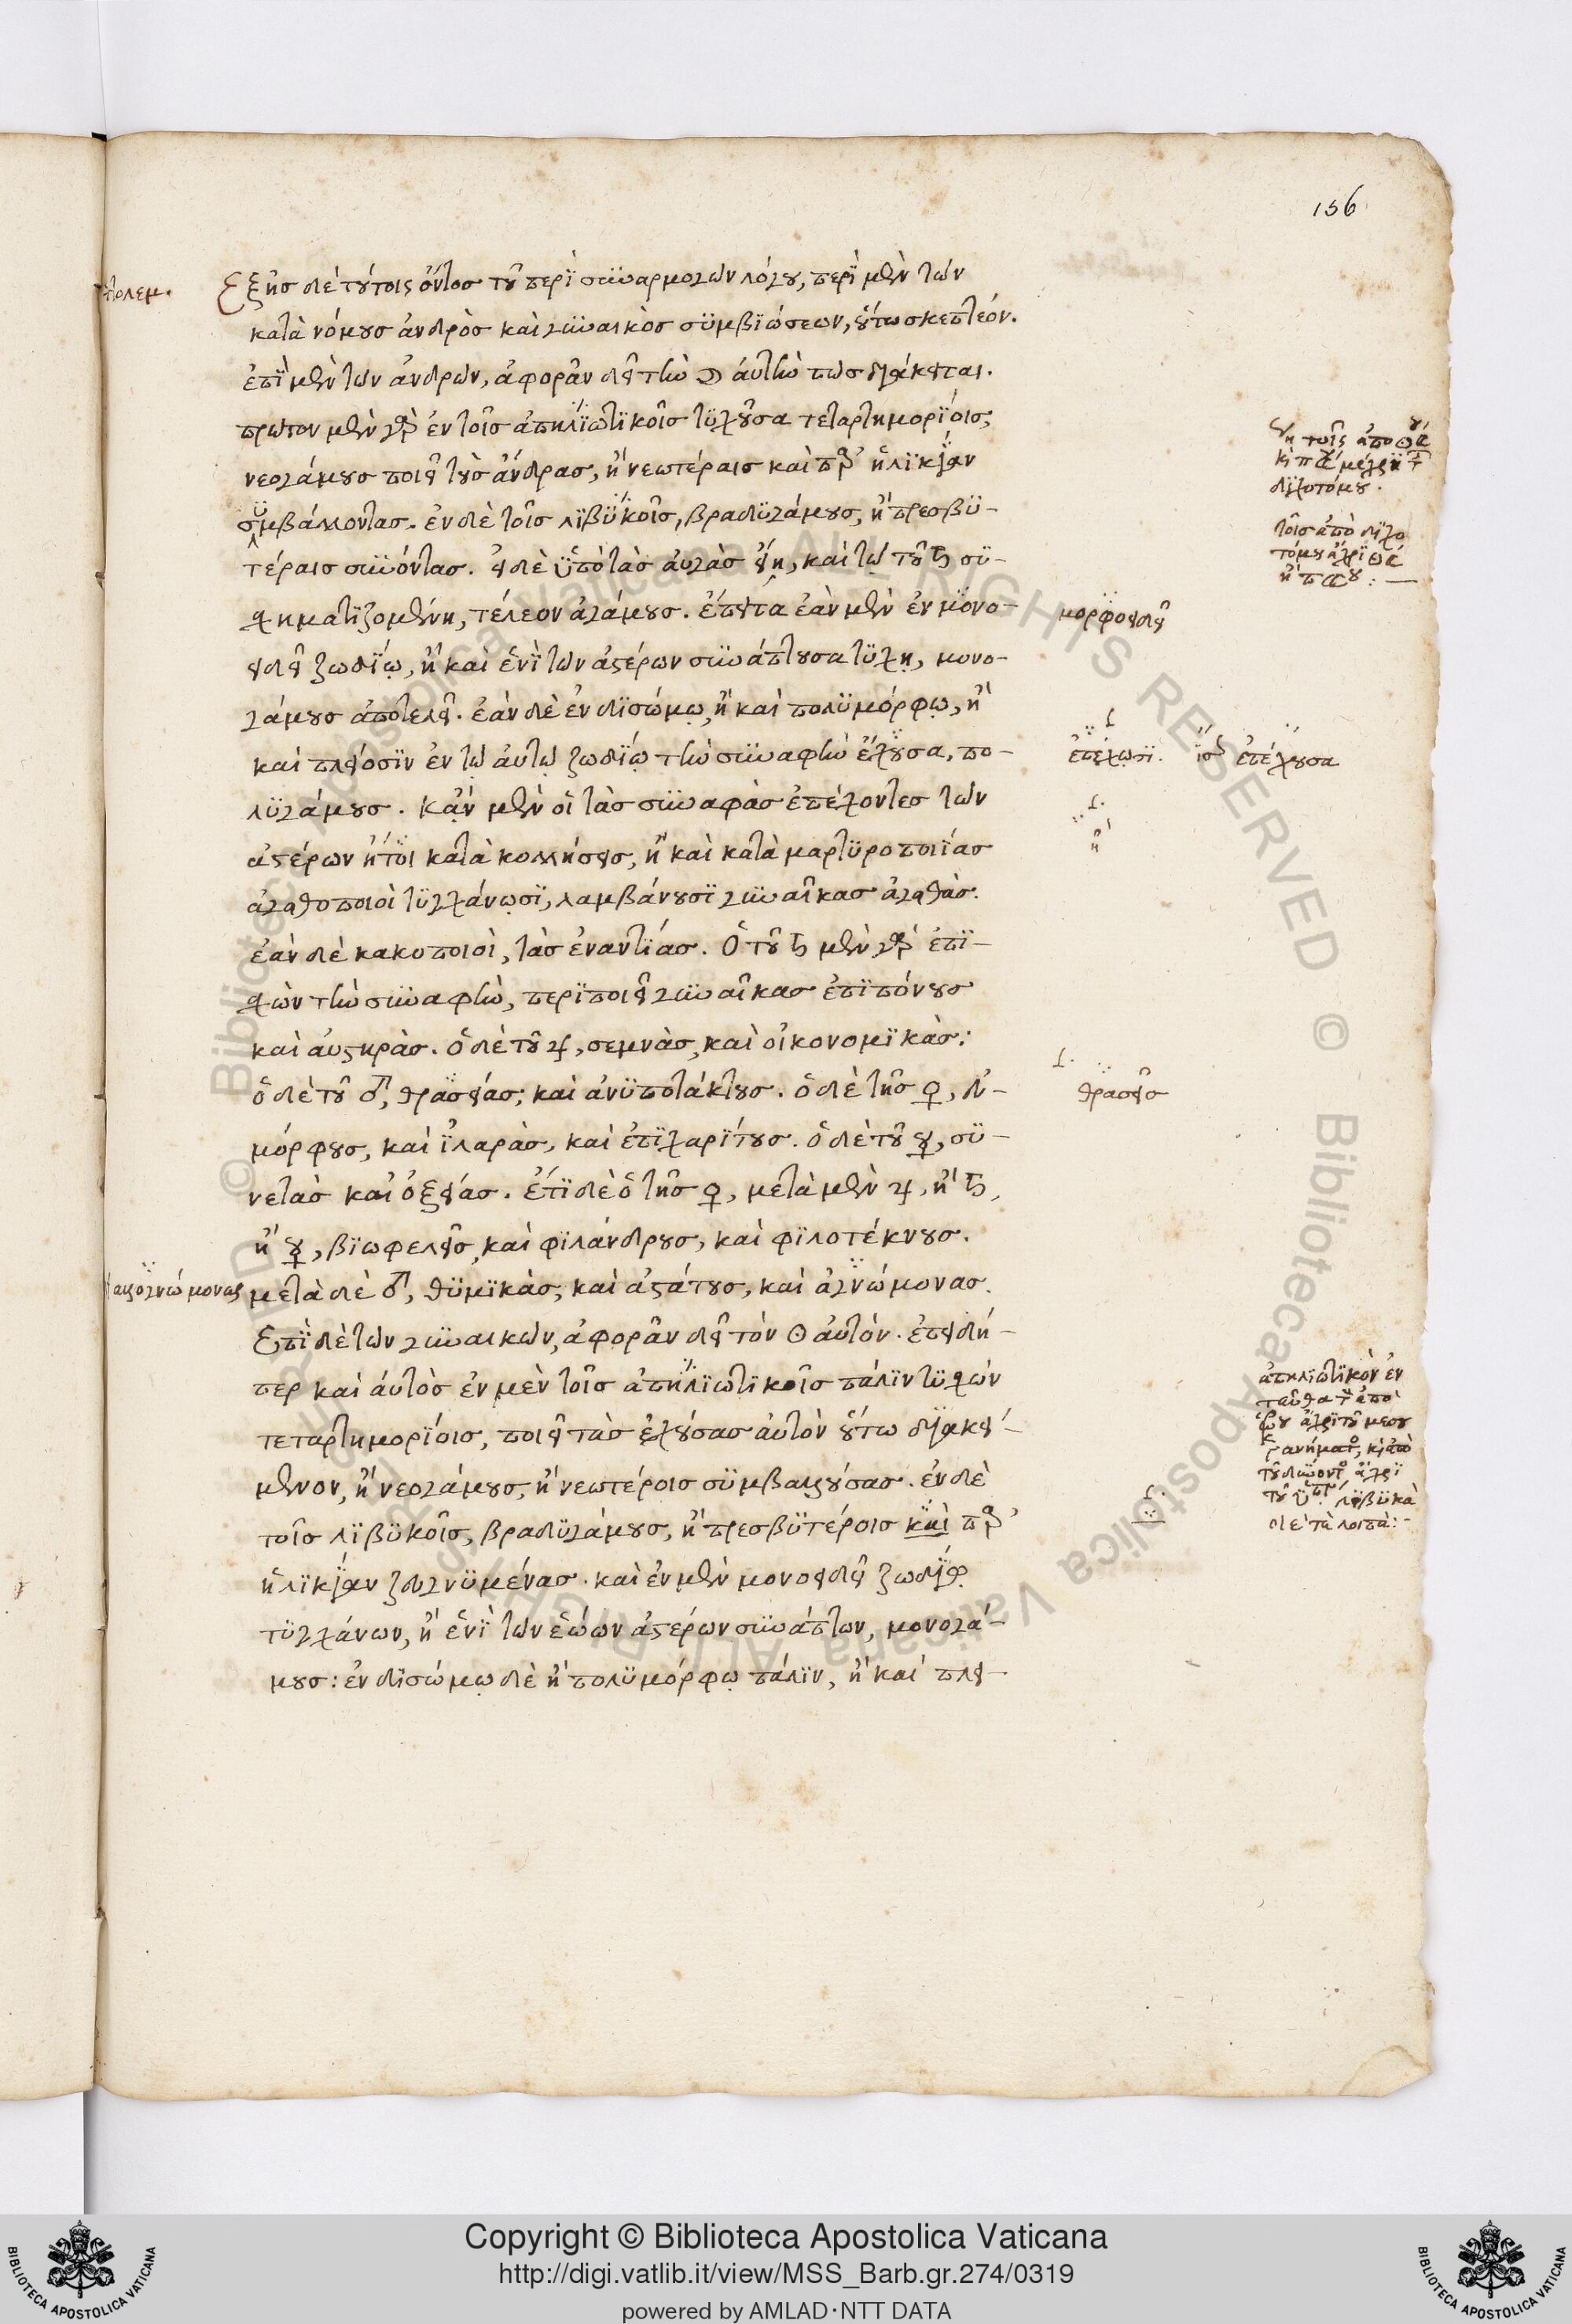 156
πτολεμ.
Ἑξῆσ δὲ τούτοις ὄντοσ τοῦ περὶ συναρμογῶν λόγου, περὶ μὲν τῶν
κατὰ νόμουσ ἀνδρὸσ καὶ γυναικὸσ συμβιώσεων, οὕτω σκεπτέον.
ἐπὶ μὲν τῶν ἀνδρῶν, ἀφορᾶν δεῖ τὴν ☽ αὐτὴν πῶσ διάκειται.
πρῶτον μὲν γὰρ ἐν τοῖσ ἀπηλιωτικοῖσ τυχοῦσα τεταρτημορίοισ,
νεογάμουσ ποιεῖ τοὺσ ἄνδρασ, ἢ νεωτέραισ καὶ παρ’ ἡλικίαν
συμβάλλοντασ. ἐν δὲ τοῖσ λιβυκοῖσ, βραδυγάμουσ, ἢ πρεσβυ-
τέραισ συνιόντασ. εἰ δὲ ὑπὸ τὰσ αὐγὰσ εἴη, καὶ τῷ τοῦ ♄ συ-
σχηματιζομένη, τέλεον ἀγάμουσ. ἔπειτα ἐὰν μὲν ἐν μονο-
ειδεῖ ζωδίῳ, ἢ καὶ ἑνὶ τῶν ἀστέρων συνάπτουσα τύχῃ, μονο-
γάμουσ ἀποτελεῖ. ἐὰν δὲ ἐν δισώμῳ, ἢ καὶ πολυμόρφῳ, ἢ
καὶ πλείοσιν ἐν τῷ αὐτῷ ζωδίῳ τὴν συναφὴν ἔχουσα, πο-
λυγάμουσ. Κἂν μὲν οἱ τὰσ συναφὰσ ἐπέχοντεσ τῶν
ἀστέρων ἤτοι κατὰ κολλήσεισ, ἢ καὶ κατὰ μαρτυροποιίασ
ἀγαθοποιοὶ τυγχάνωσι, λαμβάνουσι γυναῖκασ ἀγαθὰσ.
ἐὰν δὲ κακοποιοὶ, τὰσ ἐναντίασ. Ὁ τοῦ ♄ μὲν γὰρ ἐπι-
σχὼν τὴν συναφὴν, περιποιεῖ γυναῖκασ ἐπιπόνουσ
καὶ αὐστηρὰσ. ὁ δὲ τοῦ ♃, σεμνὰσ, καὶ οἰκονομικὰσ:
ὁ δὲ τοῦ ♂, θρασείασ, καὶ ἀνυποτάκτουσ. ὁ δὲ τῆσ ♀, εὐ-
μόρφουσ, καὶ ἱλαρὰσ, καὶ ἐπιχαρίτουσ. ὁ δὲ τοῦ ☿, συ-
νετὰσ καὶ ὀξείασ. ἔτι δὲ ὁ τῆσ ♀, μετὰ μὲν ♃, ἢ ♄,
ἢ ☿, βιωφελεῖσ, καὶ φιλάνδρουσ, καὶ φιλοτέκνουσ.
μετὰ δὲ ♂, θυμικὰσ, καὶ ἀστάτουσ, καὶ ἀγνώμονασ.
Ἐπὶ δὲ τῶν γυναικῶν, ἀφορᾶν δεῖ τὸν ☉ αὐτὸν. ἐπειδή-
περ καὶ αὐτὸσ ἐν μὲν τοῖσ ἀπηλιωτικοῖσ πάλιν τυχὼν
τεταρτημορίοισ, ποιεῖ τὰσ ἐχούσασ αὐτὸν οὕτω διακεί-
μενον, ἢ νεογάμουσ, ἢ νεωτέροισ συμβαλλούσασ. ἐν δὲ
τοῖσ λιβυκοῖσ, βραδυγάμουσ, ἢ πρεσβυτέροισ καὶ παρ’
ἡλικίαν ζευγνυμένασ. καὶ ἐν μὲν μονοειδεῖ ζωδίῳ
τυγχάνων, ἢ ἑνὶ τῶν ἑῴων ἀστέρων συνάπτων, μονογά-
μουσ: ἐν δισώμῳ δὲ ἢ πολυμόρφῳ πάλιν, ἢ καὶ πλεί-
τοῖσ ἀπὸ διχο
τόμου ἄχρι
μορφοειδεῖ
ἐπέχωσι. ἴσ ἐπέχουσα
ἢ
θρασεῖσ
ἀπηλιωτικὸν ἐν
ταῦθα τὸ ἀπὸ
ἄχρι τοῦ μεσου
ρανήματος, καὶ ἀπὸ
τοῦ δύνοντος ἄχρι
τοῦ ὑπ λιβυκὰ
δὲ τὰ λοιπὰ:-
Copyright © Biblioteca Apostolica Vaticana
http://digi.vatlib.it/view/MSS_Barb.gr.274/0319
powered by AMLAD·NTT DATA
BIBLIOTECA APOSTOLICA VATICANA
BIBLIOTECA APOSTOLICA VATICANA